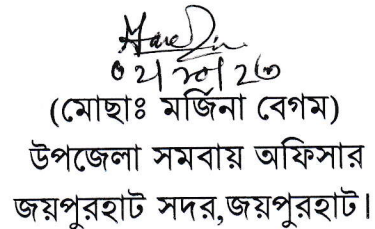 (মোছাঃ মর্জিনা বেগম)
উপজেলা সমবায় অফিসার
জয়পুরহাট সদর,জয়পুরহাট।